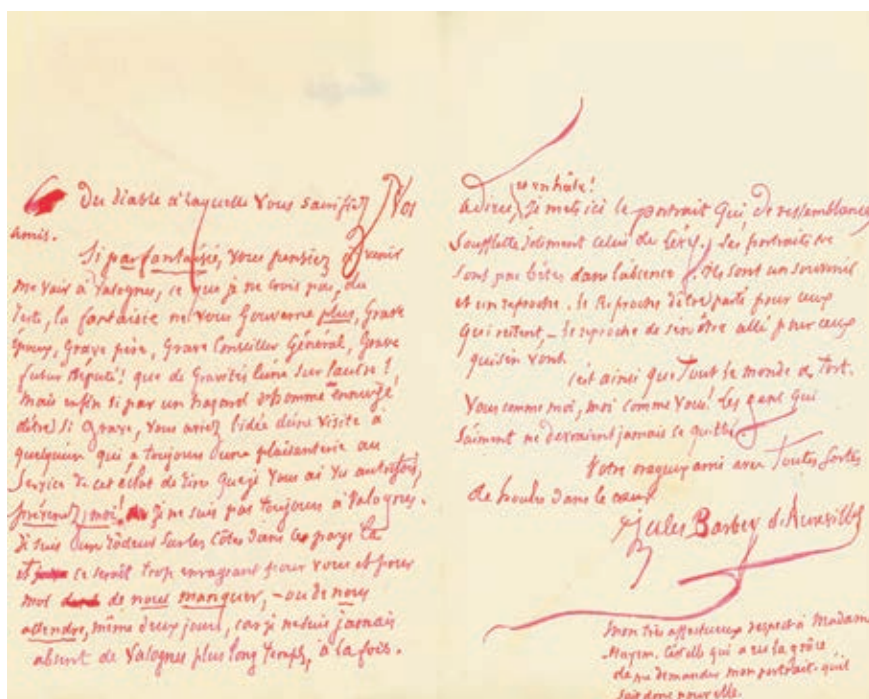 Du diable à laquelle vous sacrifiez Vos
amis.
Si par fantaisie, vous pensiez à venir
me voir à Valognes, ce que je ne crois pas, du
reste, la fantaisie ne vous Gouverne plus, Grave
époux, Grave père, Grave Conseiller Général, Grave
futur Député! que de Gravités l'une sur l'autre!,
mais enfin si par un hazard d'homme ennuyé
d'être si Grave, vous aviez l'idée d'une visite à
quelqu'un qui a toujours d'une plaisanterie au
Service de cet éclat de rire que je vous ai vu autrefois,
prévenez moi! je ne suis pas toujours à Valognes.
Je suis un rôdeur sur les côtes dans ce pays là
et ce serait trop enrageant pour vous et pour
moi de nous manquer, – ou de nous
attendre, même deux jours, car je ne suis jamais
absent de Valognes plus long temps, à la fois.
adieu, et en hâte!
Je mets ici le portrait qui de ressemblance
soufflette joliment celui de Léry. Les portraits ne
sont pas bêtes dans l'absence. Ils sont un souvenir
et un reproche. le Reproche d'être parti pour ceux
qui restent, – le reproche de s'en être allé pour ceux
qui s'en vont.
C'est ainsi que Tout le monde a Tort.
Vous comme moi, moi comme vous! Les gens qui
s'aiment ne devraient jamais se quitter.
Votre ami avec Toutes sortes
de dans le cœur
Jules Barbey d'Aurevilly
mon très affectueux respect à Madame
Hayem. C'est elle qui a eu la grâce
de me demander mon portrait. qu'il
soit donc pour elle.